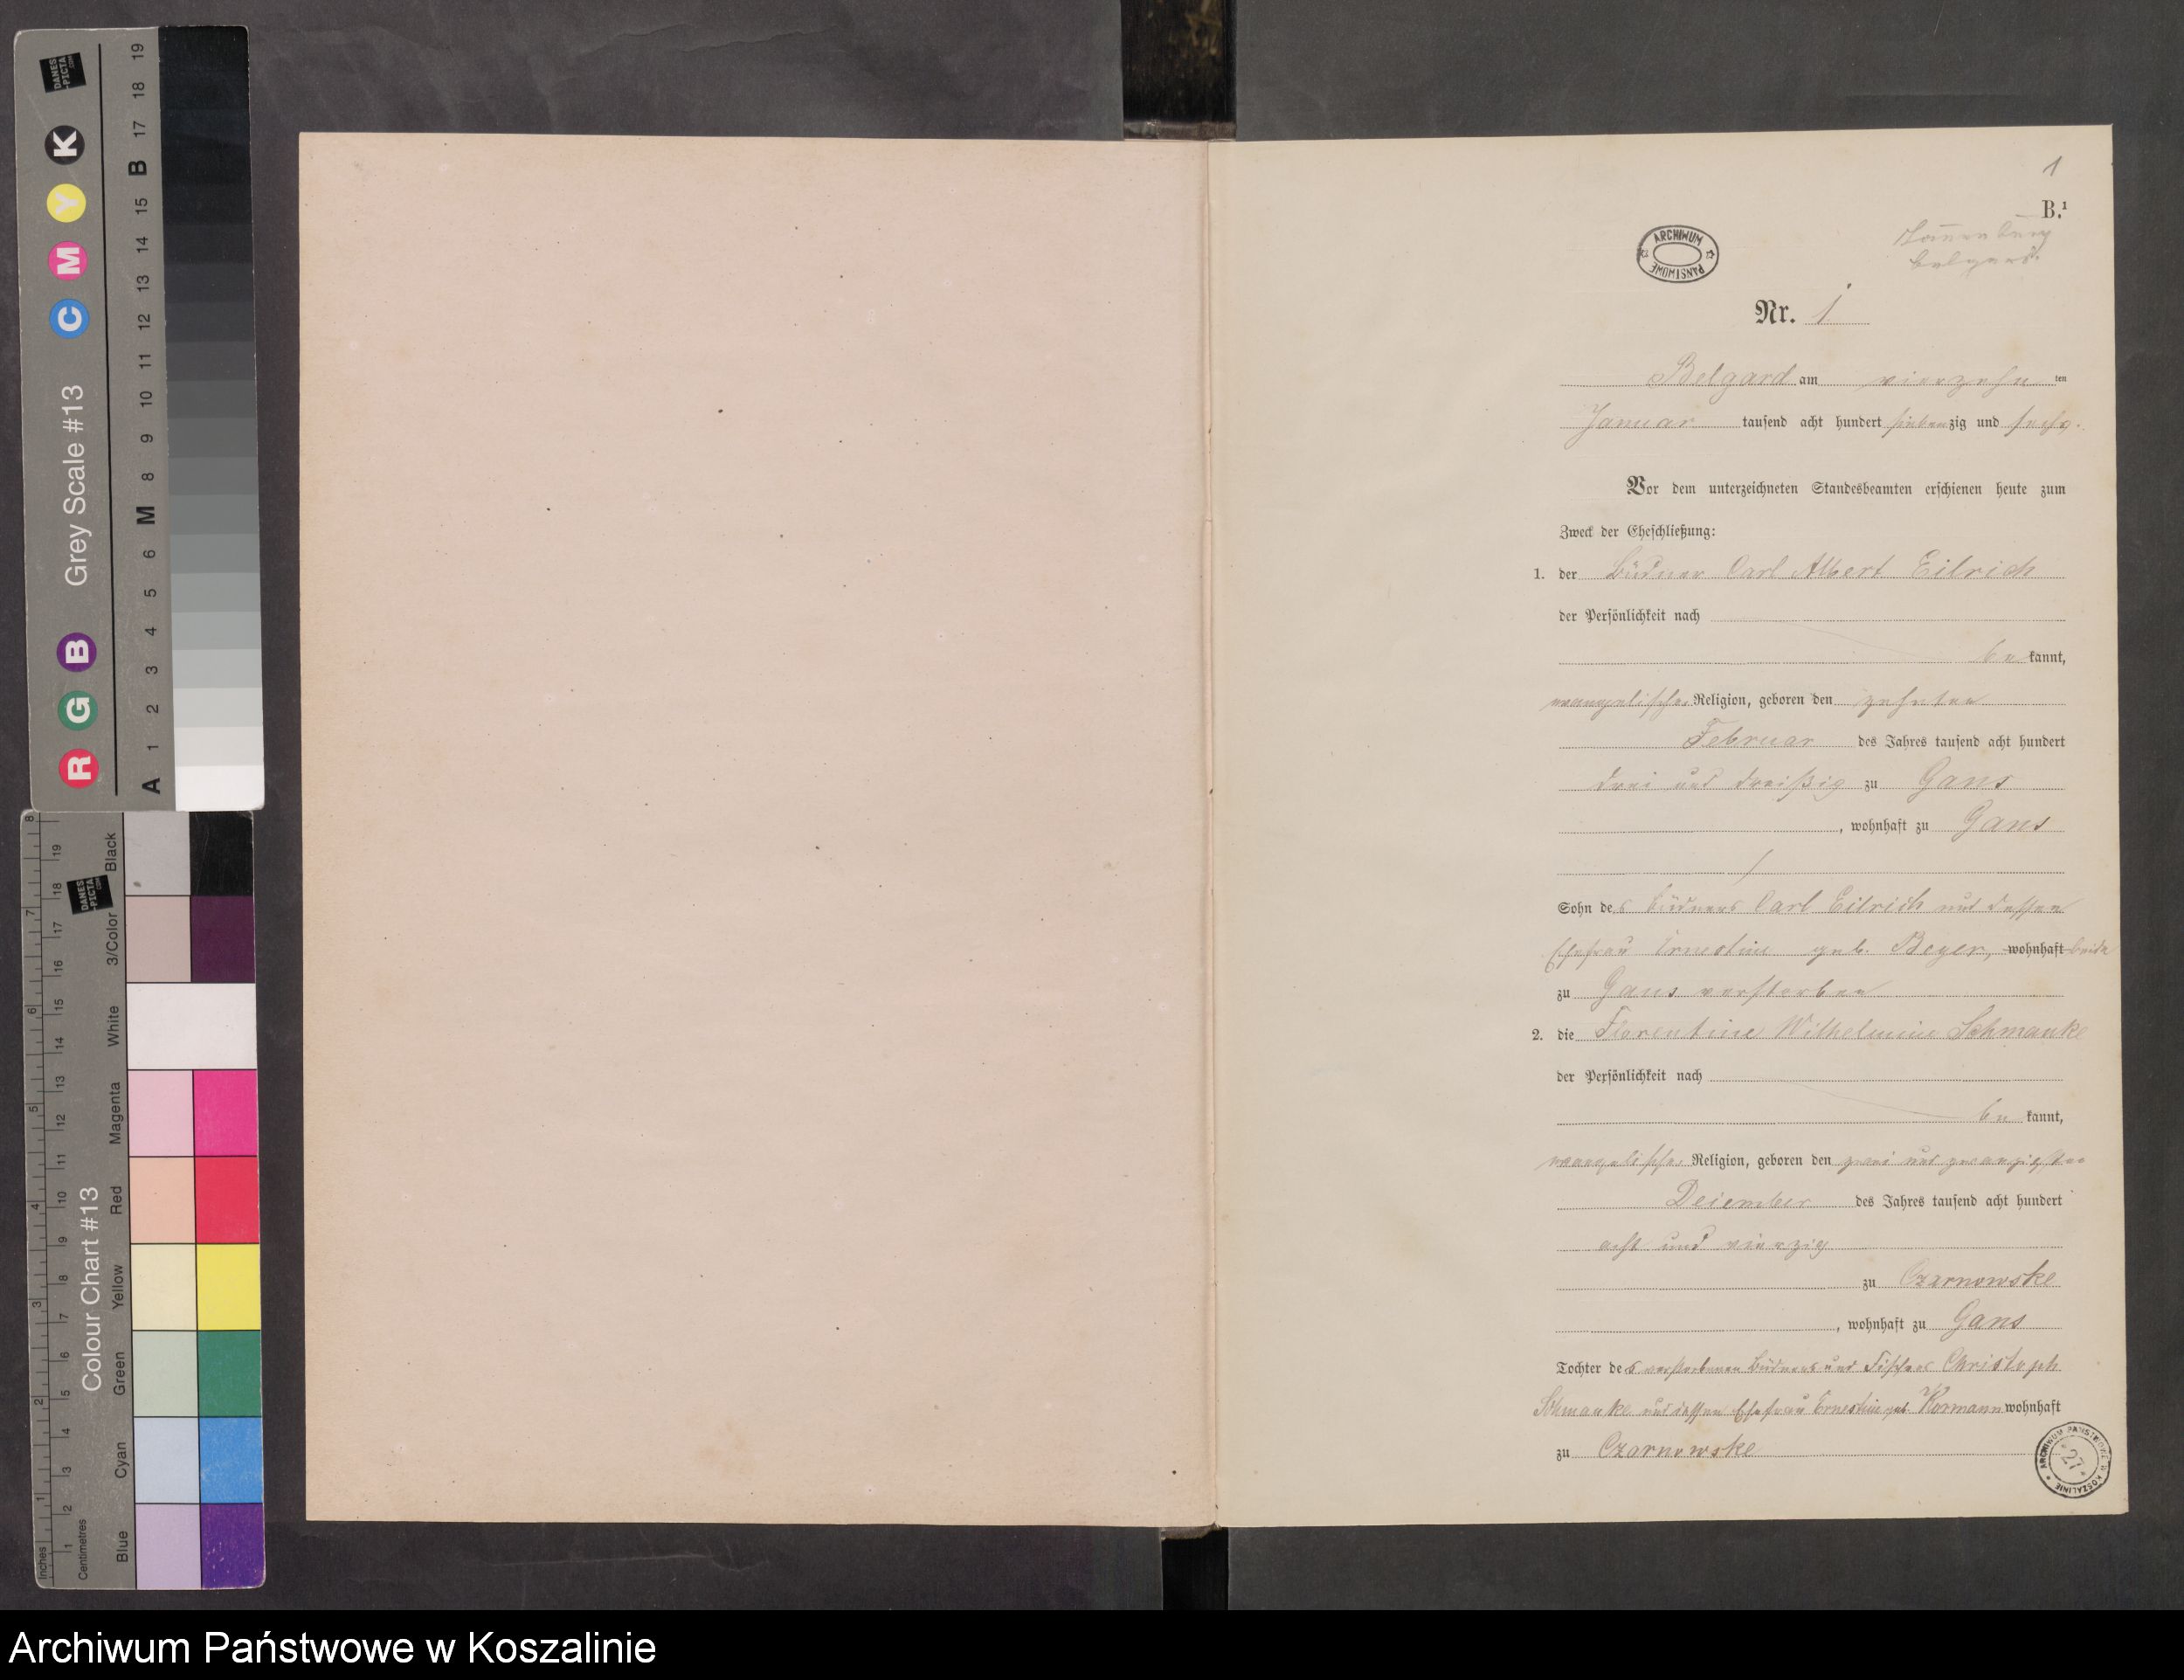 1
B.¹
Lauenburg
Belgard.
ARCHIWUM PAŃSTWOWE
Nr. 1
Belgard am vierzehn ten
Januar tausend acht hundert siebenzig und sechs.
Vor dem unterzeichneten Standesbeamten erschienen heute zum
Zweck der Eheschließung:
1. der Büdner Carl Albert Eilrich
der Persönlichkeit nach
be kannt,
evangelischer Religion, geboren den zehnten
Februar des Jahres tausend acht hundert
drei und dreißig zu Gans
, wohnhaft zu Gans
Sohn des Büdners Carl Eilrich und dessen
Ehefrau Ernestine geb. Beyer, wohnhaft beide
zu Gans verstorben
2. die Florentine Wilhelmine Schmanke
der Persönlichkeit nach
be kannt,
evangelischer Religion, geboren den zwei und zwanzigsten
Dezember des Jahres tausend acht hundert
acht und vierzig
zu Czarnowske
, wohnhaft zu Gans
Tochter des verstorbenen Büdners und Fischer Christoph
Schmanke und dessen Ehefrau Ernestine geb. Kormann wohnhaft
zu Czarnowske
ARCHIWUM PAŃSTWOWE W KOSZALINIE
27
DANES-PICTA.COM
Grey Scale #13
R G B C M Y K
A 1 2 3 4 5 6 M 8 9 10 11 12 13 14 15 B 17 18 19
DANES-PICTA.COM
Colour Chart #13
Blue Cyan Green Yellow Red Magenta White 3/Color Black
Inches 1 2 3 4 5 6 7 8
Centimetres 1 2 3 4 5 6 7 8 9 10 11 12 13 14 15 16 17 18 19
Archiwum Państwowe w Koszalinie